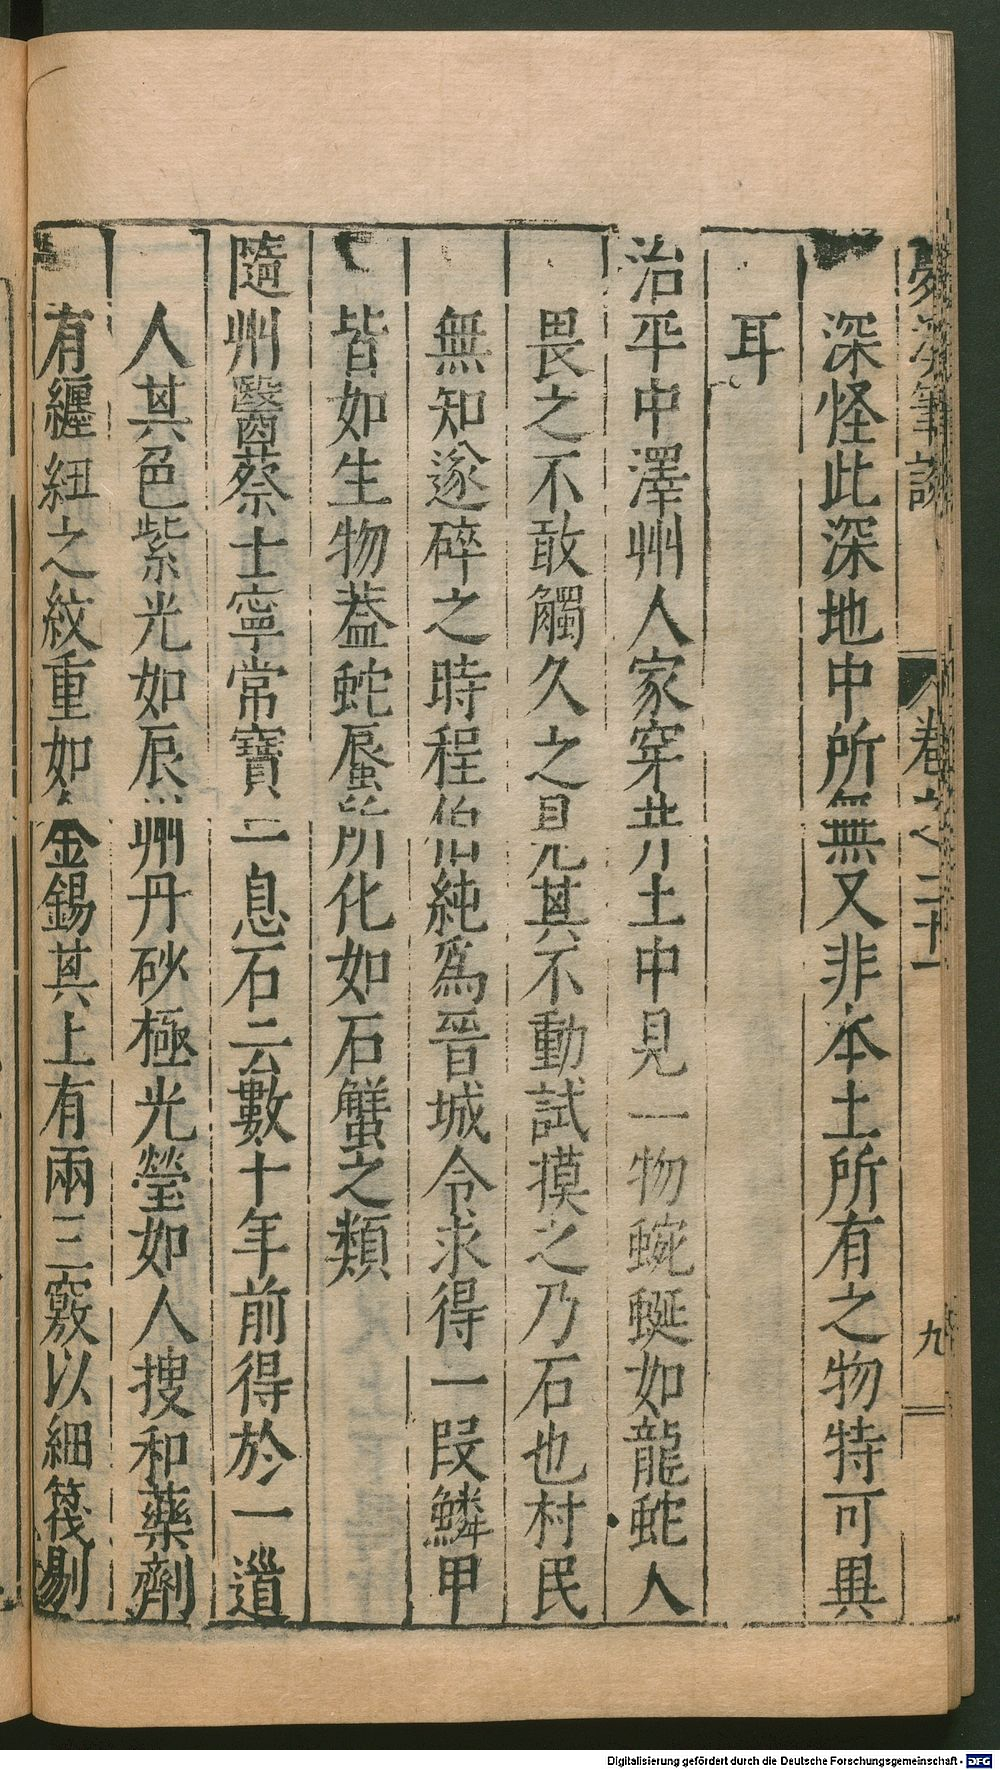 夢溪筆談 卷之二十一 九
深怪此深地中所無又非本土所有之物特可異
耳
治平中澤州人家穿井土中見一物蜿蜒如龍蛇人
畏之不敢觸久之見其不動試摸之乃石也村民
無知遂碎之時程伯純為晉城令求得一段鱗甲
皆如生物蓋蛇蜃所化如石蟹之類
隨州醫蔡士寧常寶一息石云數十年前得於一道
人其色紫光如辰州丹砂極光瑩如人搜和藥劑
有纏紐之紋重如金錫其上有兩三竅以細篾剔
Digitalisierung gefördert durch die Deutsche Forschungsgemeinschaft - DFG